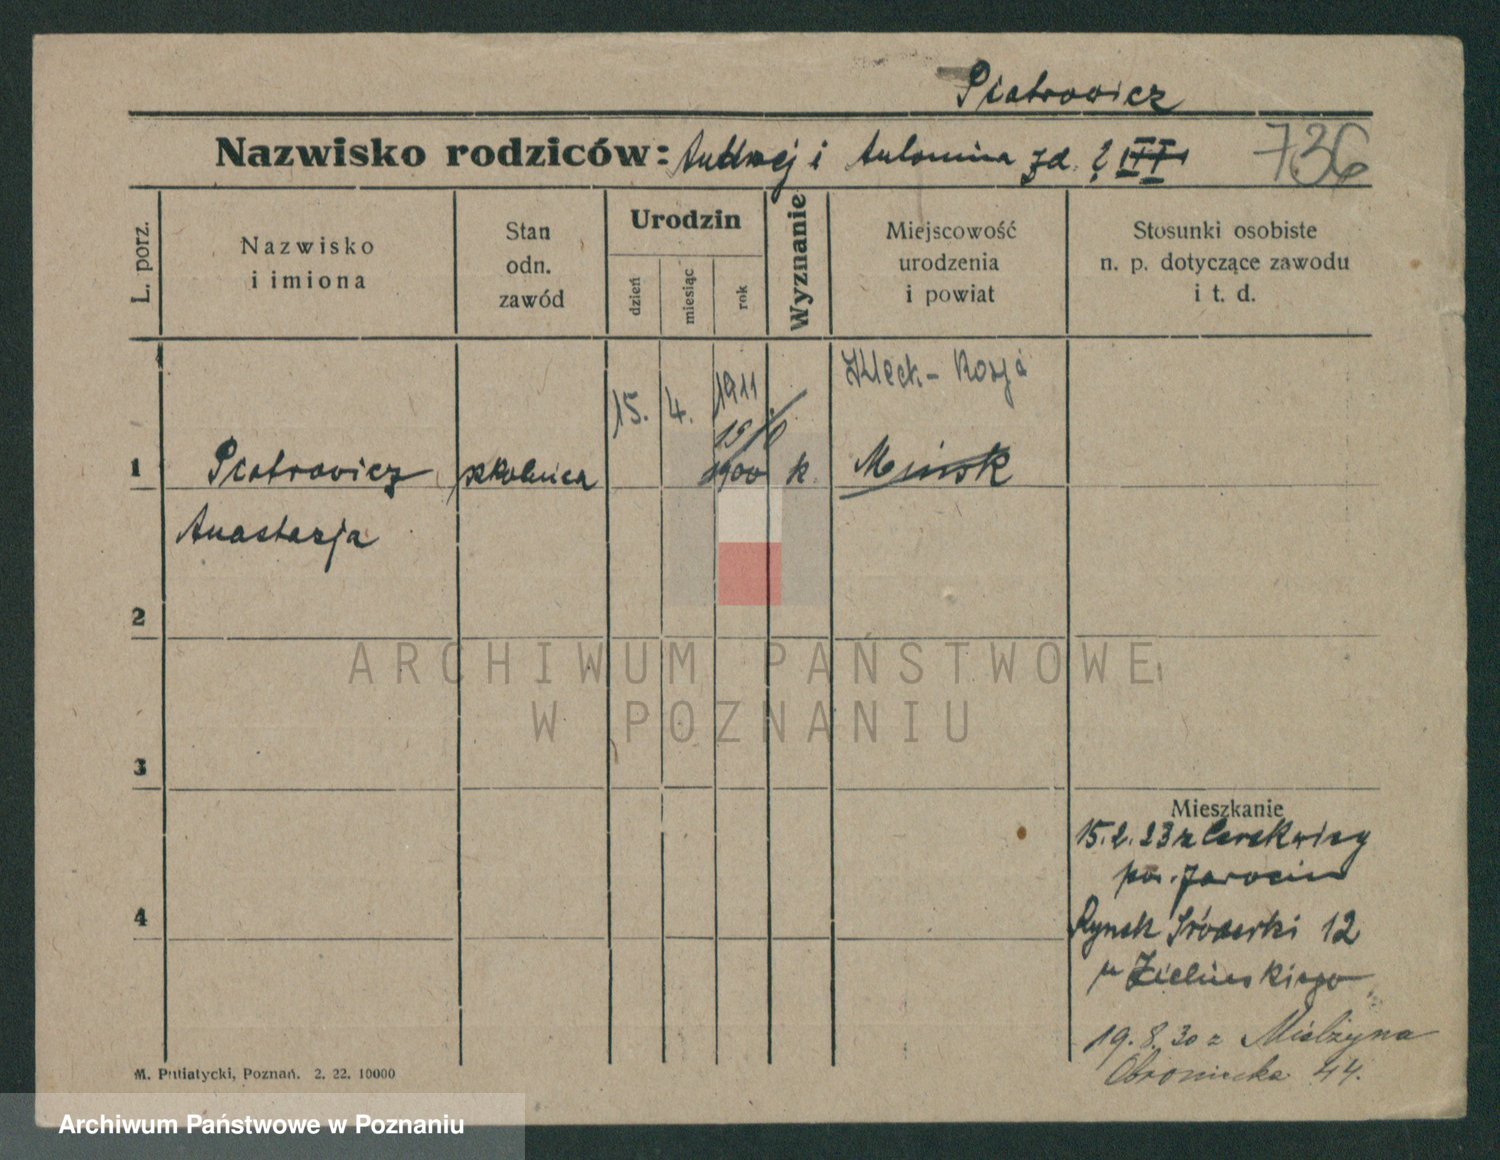 Piotrowicz
Nazwisko rodziców: Andrzej i Antonina zd. ? III
736
L. porz.
Nazwisko
i imiona
Stan
odn.
zawód
Urodzin
dzień
miesiąc
rok
Wyznanie
Miejscowość
urodzenia
i powiat
Stosunki osobiste
n. p. dotyczące zawodu
i t. d.
Kleck - Rosja
15. 4. 1911
1910
1 Piotrowicz szkolnica 1900 k. Mińsk
Anastazja
2
ARCHIWUM PAŃSTWOWE
W POZNANIU
3
Mieszkanie
15.2.23 z Cerekwicy
pow. Jarocin
4
Rynek Śródecki 12
u Zielińskiego
19.8.30 z Mielżyna
Obornicka 44.
M. Putiatycki, Poznań. 2. 22. 10000
Archiwum Państwowe w Poznaniu